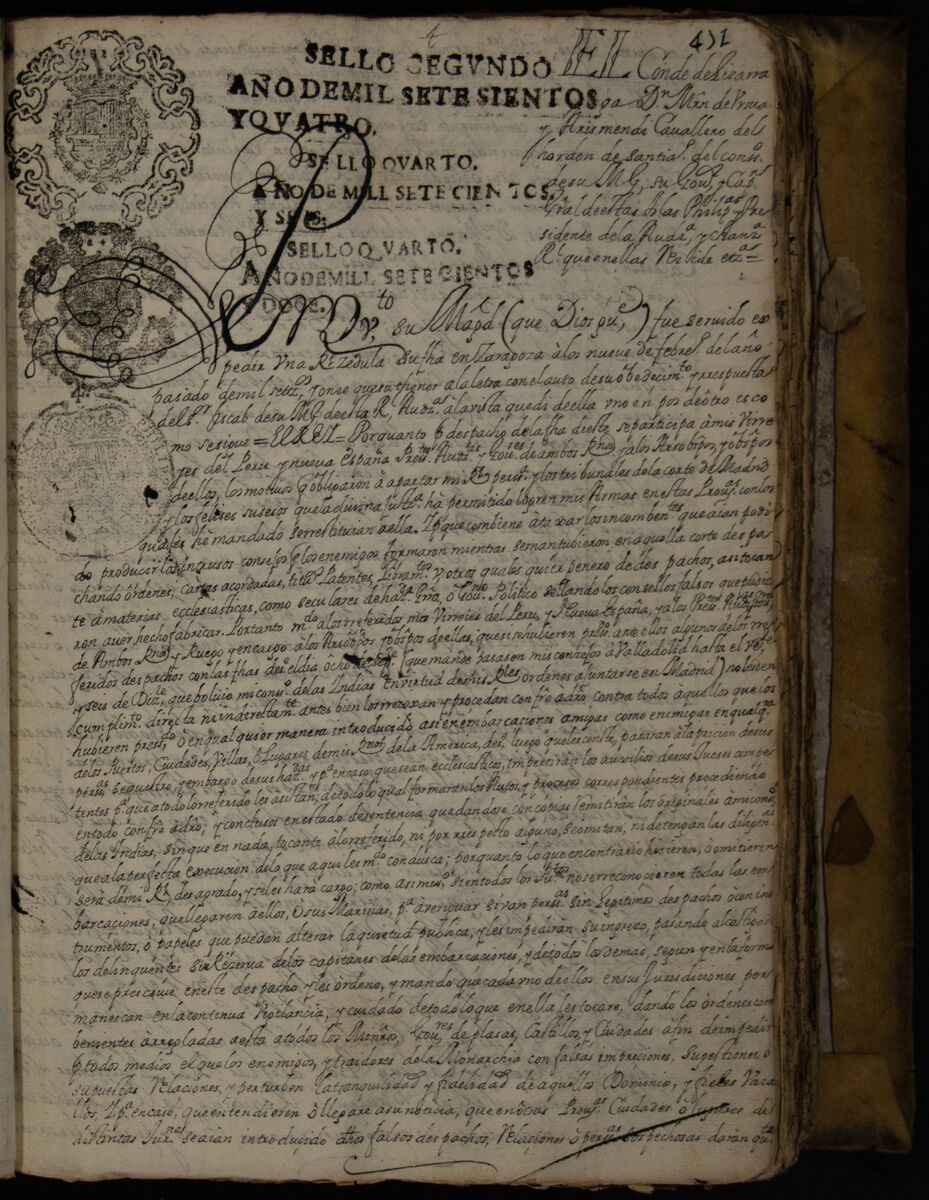 431
SELLO SEGVNDO
AÑO DE MIL SETE SIENTOS
Y QVATRO.
SELLO QVARTO.
AÑO DE MILL SETECIENTOS
Y SEIS.
SELLO QVARTO.
AÑO DE MILL SETECIENTOS
Y DOCE.
EL Conde de Lisarra
ga Dn Mrn de Vrsua
y Arismendi Cavallero del
horden de santiao. del conso.
de su Mg, su Govr, y Capn
Gral de estas Yslas Philipas y Pre
sidente de la Auda., y Chanza.
Rl que en ellas Reside etza=
Por quto su Magd (que Dios gue) fue servido ex
pedir vna Rl Zedula su fha en Zaragoza à los nueve de febro. del año
pasado de mil setezos y onze que su thenor a la letra con el auto de su obedecimto y respuesta
del Sr fiscal de su Mg de esta Rl Auda. à la vista que di de ella vno en pos de otro es co
mo se sigue = EL REY = Por quanto p despacho de la fha de este se participa à mis Virre
yes del Peru y nueva España Prestes Audas y Govres de ambos Rnos y a los Arzobpos, y obpos
de ellos, los motivos q obligaron à apartar mi Rl persa. y los tribunales de la corte de Madrid
y los felises susesos que la divina Justa. hà permitido logren mis Armas en estas Provas con los
quales he mandado se rrestituian à ella. Y p que combiene à taxar los incombentes que aian podi
do producir los injustos consejos q los enemigos formaron mientras se mantubieron en aquella corte des pa
chando órdenes, Cartas acordadas, titos Patentes, Libramtos y otros quales quier genero de despachos, asi tocan
te à materias ecclesiasticas, como seculares de hazda. Grra, o Govno Politico sellando los con sellos falsos que pudie
ron aver hecho fabricar. Por tanto mdo a los rreferidos mis Virreies del Peru, y Nueva España, y a los Prestes
de Ambos Rnos y Ruego y encargo à los Arzobpos y obpos de ellos, que si hubieren preso. ante ellos algunos de los rre
feridos despachos con las fhas desde el dia ocho de sepe (que mande pasasen mis consejos à Valladolid hasta el ve
y seis de Dize. que bolvio mi conso. de las Indias en virtud de mis Rles ordenes à juntarse en Madrid) no les den
cumplimto. directa ni indirectamte. antes bien los rretengan y procedan confre à dro contra todos aquellos que los
hubieren presdo ò en qual quier manera introducido asi en embarcaciones amigas como enemigas en qualqra
de los Puertos, Ciudades, Villas, ò Lugares de mis Rnos de la América, desde luego que les conste, pasarán à la pricion de sus
persas sequestro, y embargo de sus hazdas y pa en caso que sean ecclesiasticos, impertirán los auxilios de sus Jueses compe
tentes pa que a todo lo rreferido les asistan; de todo lo qual formarán los Autos, y procesos correspondientes procediendo
en todo confre à dro; y conclusos en estado de sentencia quedandose con copias remitirán los originales a mi conso
de las Indias, sin que en nada, tocante à lo rreferido, ni por rrespecto alguno, se omitan, ni detengan las diligens
que a la perfecta execucion de lo que aqui les mdo condusca; por quanto lo que en contrario hisieren, ò omitieren
será de mi Rl desagrado, y se les hará cargo; como asi mismo si en todos los Ptos no se rreconocieren todas las em
barcaciones, que llegaren à ellos, ò sus Marinas, pa averiguar si van persas sin legitimos despachos ò con ins
trumentos, ò papeles que puedan alterar la quietud publica, y les impedirán su ingreso, pasando al castigo de
los delinquentes sin Rezerva de los capitanes de las embarcaciones, y de todos los demas, segun y en la forma
que se prescrive en este despacho y les órdeno, y mando que cada vno de ellos en sus Jurisdiciones per
manescan en la continua Vigilancia, y cuidado de todo lo que en ella es tocare, dando los órdenes com
benientes àrregladas a esta a todos los Minros, Govres de plasas, Castillos, y Ciudades a fin de impedir
p todos medios el que los enemigos, y traidores de la Monarchia con falsas impreciones, Sugestiones, ò
supuestas Relaciones, y perturben la tranquilidad y fidelidad de aquellos Dominios, y fieles Vasa
llos, Y pa en caso, que entendieren ò llegare a su noticia, que en otras Provas Ciudades ò lugares de
distintas Jurnes se aian introducido dhos falsos despachos, Relaciones ò persas sospechosas darán qta